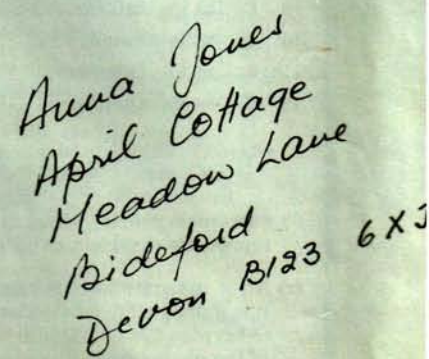 Anna Jones
April Cottage
Meadow Lane
Bideford
Devon B123 6XJ